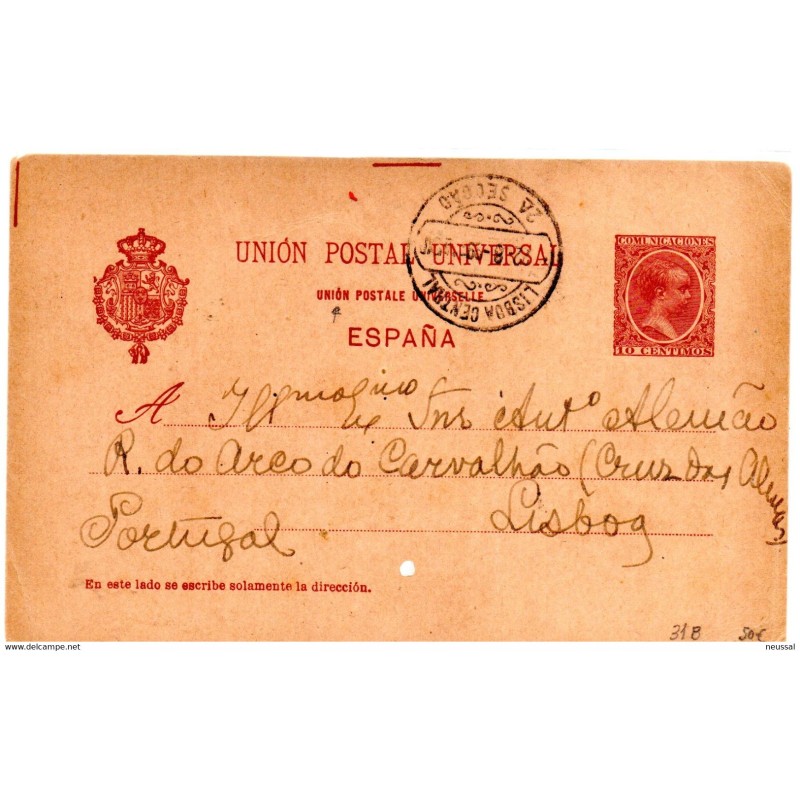 UNIÓN POSTAL UNIVERSAL
UNIÓN POSTALE UNIVERSELLE
ESPAÑA
COMUNICACIONES
10 CENTIMOS
LISBOA CENTRAL
2A SECCÃO
A Illmo Exmo Snr Antº Alemão
R. do Arco do Carvalhão (Cruz das Almas)
Lisboa
Portugal
En este lado se escribe solamente la dirección.
31B 50€
www.delcampe.net
neussal